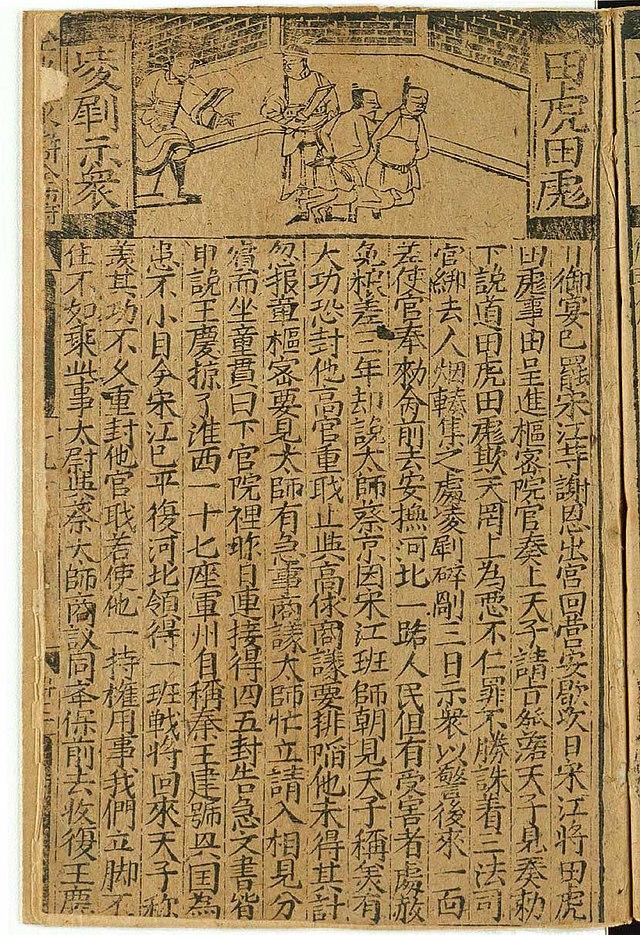 田虎田彪
凌剮示衆
御宴已罷宋江等謝恩出宮回营安歇次日宋江將田虎
田彪事由呈進樞密院官奏上天子請旨發落天子見奏勅
下說道田虎田彪欺天罔上為惡不仁罪不勝誅着三法司
官綁去人烟輳集之處凌剮碎剮三日示衆以警後來一面
差使官奉勑命前去安撫河北一路人民但有受害者處赦
免粮差二年却說太師蔡京因宋江班師朝見天子稱羙有
大功恐封他高官重职止與高俅商議要排陷他未得其計
忽报董樞密要見太師有急事商議太師忙立請入相見分
賓而坐童貫曰下官院裡昨日連接得四五封告急文書皆
申說王慶掠了淮西一十七座軍州自稱秦王建號與囯為
患不小目今宋江已平復河北領得一班戰將回來天子称
羡其功不久重封他官职若使他一持權用事我們立脚不
住不如乘此事太尉與蔡太師商議同奏保前去收復王慶